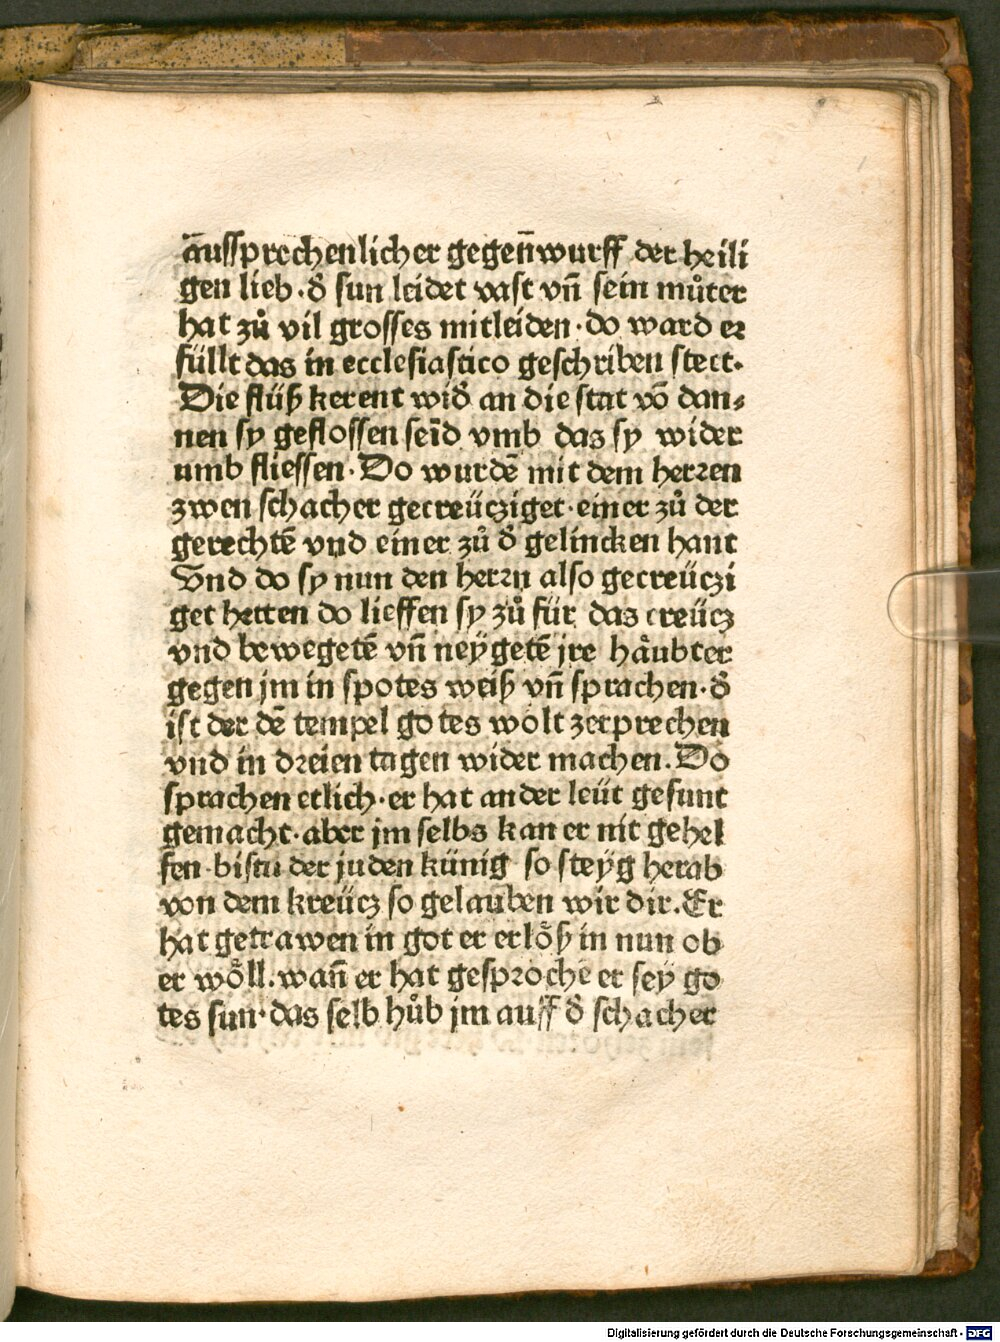 āussprechenlicher gegen̄wurff der heili
gen lieb·d̄ sun leidet vast vn̄ sein můter
hat zů vil grosses mitleiden·do ward er
füllt das in ecclesiastico geschriben stett.
Die flüß kerent wid̄ an die stat vō dan-
nen sy geflossen seīd vmb das sy wider
umb fliessen·Do wurdē mit dem herren
zwen schacher gecreücziget·einer zů der
gerechtē vnd einer zů d̄ gelincken hant
Vnd do sy nun den herrn also gecreüczi
get hetten do lieffen sy zů für das creücz
vnd bewegetē vn̄ neÿgetē jre häubter
gegen jm in spotes weiß vn̄ sprachen·d̄
ist der dē tempel gotes wolt zerprechen
vnd in dreien tagen wider machen. Do
sprachen etlich·er hat ander leüt gesunt
gemacht·aber jm selbs kan er nit gehel
fen·bistu der juden künig so steÿg herab
von dem kreücz so gelauben wir dir. Er
hat getrawen in got er erlöß in nun ob
er wöll. wan̄ er hat gesprochē er seÿ go
tes sun·das selb hůb jm auff d̄ schacher
Digitalisierung gefördert durch die Deutsche Forschungsgemeinschaft - DFG